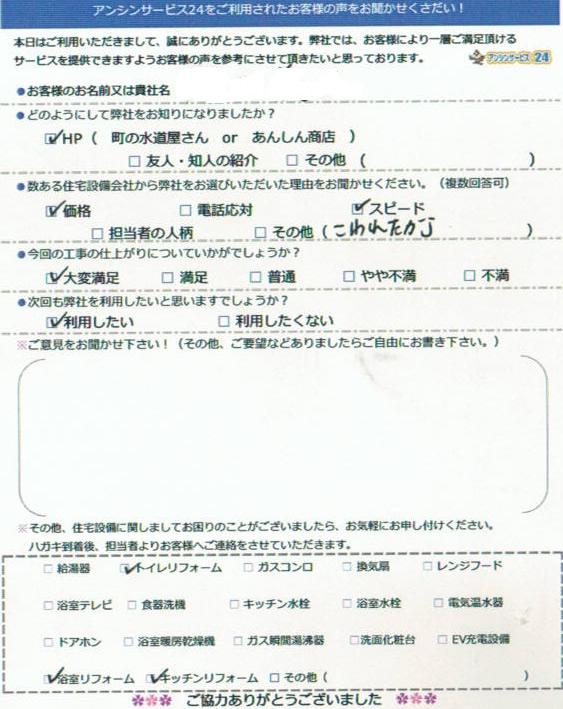 アンシンサービス24をご利用されたお客様の声をお聞かせください！
本日はご利用いただきまして、誠にありがとうございます。弊社では、お客様により一層ご満足頂ける
サービスを提供できますようお客様の声を参考にさせて頂きたいと思っております。
アンシンサービス 24
●お客様のお名前又は貴社名
●どのようにして弊社をお知りになりましたか？
☑HP（ 町の水道屋さん or あんしん商店 ）
□ 友人・知人の紹介 □ その他（ ）
●数ある住宅設備会社から弊社をお選びいただいた理由をお聞かせください。（複数回答可）
☑価格 □ 電話応対 ☑スピード
□ 担当者の人柄 □ その他（こわれたから ）
●今回の工事の仕上がりについていかがでしょうか？
☑大変満足 □ 満足 □ 普通 □ やや不満 □ 不満
●次回も弊社を利用したいと思いますでしょうか？
☑利用したい □ 利用したくない
※ご意見をお聞かせ下さい！（その他、ご要望などありましたらご自由にお書き下さい。）
※その他、住宅設備に関しましてお困りのことがございましたら、お気軽にお申し付けください。
ハガキ到着後、担当者よりお客様へご連絡をさせていただきます。
□ 給湯器 ☑トイレリフォーム □ ガスコンロ □ 換気扇 □ レンジフード
□ 浴室テレビ □ 食器洗機 □ キッチン水栓 □ 浴室水栓 □ 電気温水器
□ ドアホン □ 浴室暖房乾燥機 □ ガス瞬間湯沸器 □洗面化粧台 □ EV充電設備
☑浴室リフォーム ☑キッチンリフォーム □ その他（ ）
ご協力ありがとうございました